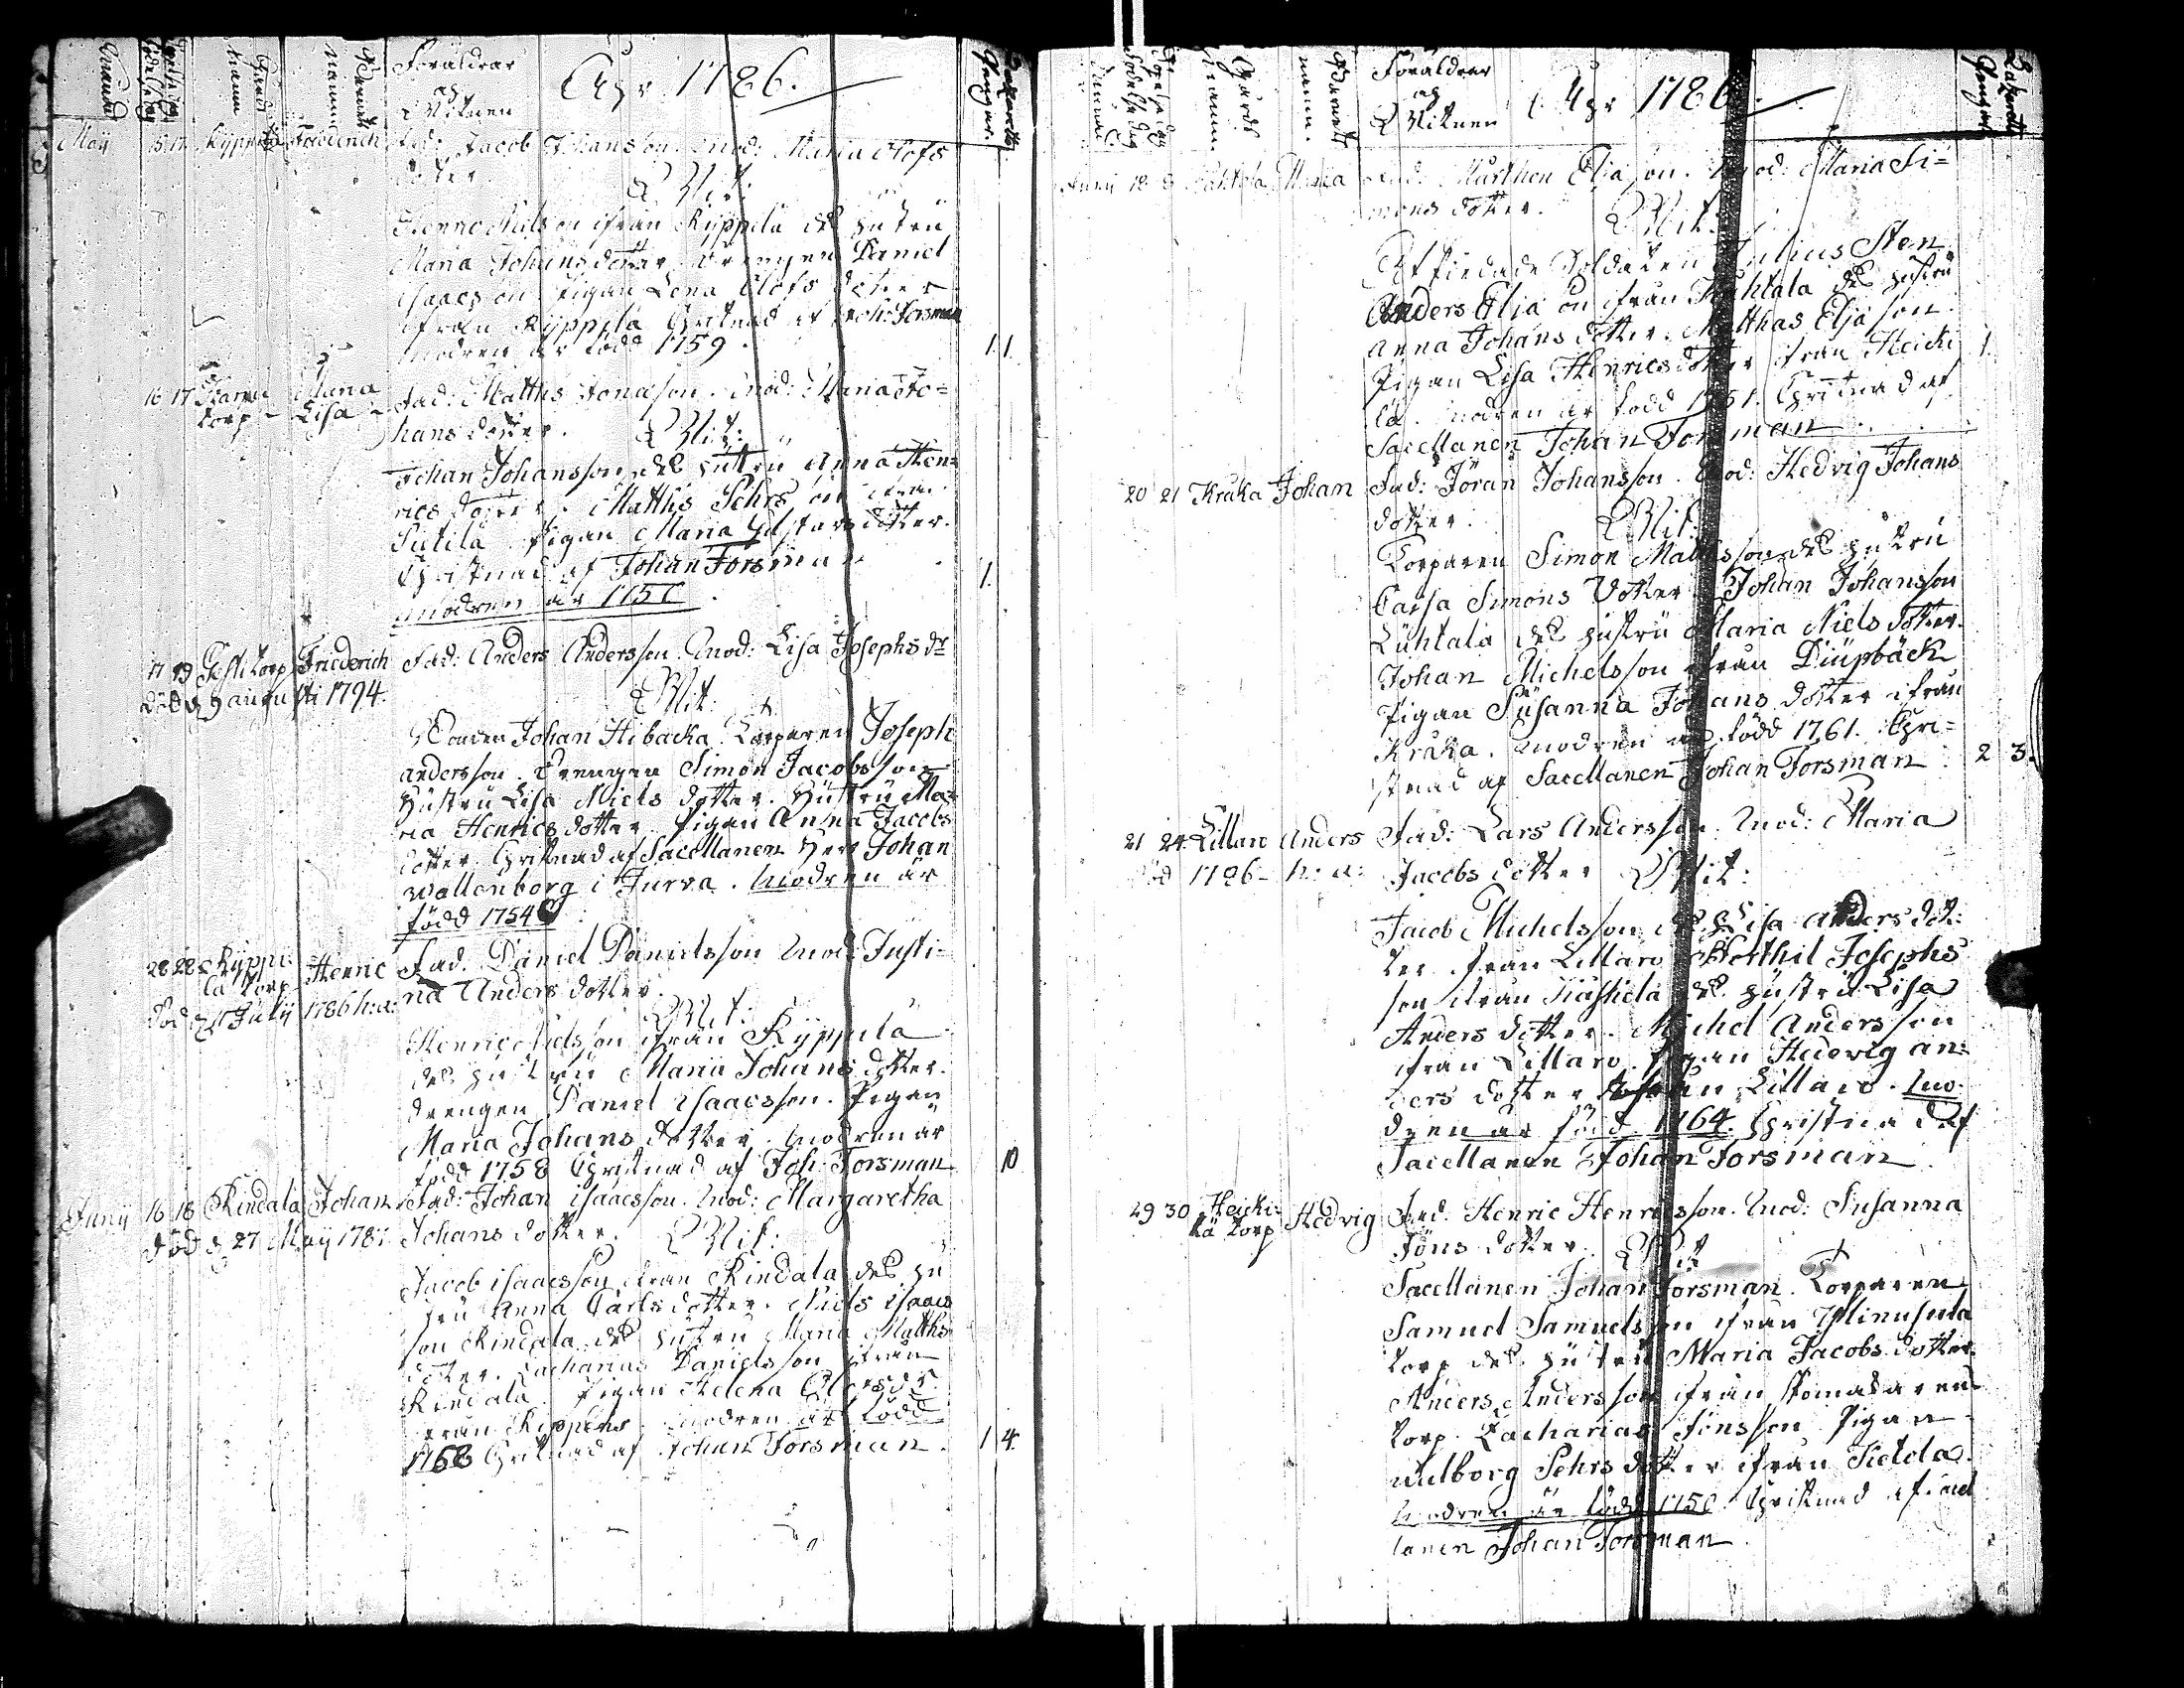 Föräldrar
och
Witnen
Apr 1786.
Maij 15 17 Kyppilä Friederich Fad: Jacob Johansson. Mod: Maria Olofs
dotter. Wit:
Henric Nilsson ifrån Kyppilä des hustru
Maria Johans dotter drengen Daniel
Isaacsson Pigan Lena Olofs dotter
ifrån Kyppilä Christnad af Joh: Forsman
modren är född 1759. 11
16 17 torp Maria Lisa Fad: Matths Jonasson. Mod: Maria Jo=
hans dotter. Wit:
Johan Johansson des hustru Anna Hen=
rics dotter. Matths Pehrs son ifrån
Pigan Maria dotter.
Christnad af Johan Forsman 1.
modren är 1750
17 19 torp Friederich Fad: Anders Andersson. Mod: Lisa Josephs dr
död d 9 augusti 1794.
Wit:
Bonden Johan Hibacka. Torparen Joseph
andersson. Drengen Simon Jacobsson
Hustru Lisa Niels dotter. Hustru Ma=
ria Henrics dotter. Pigan Anna Jacobs
dotter. Christnad af Sacellanen Herr Johan
Wallenborg i Jurva. Modren är
född 1754
28 28 Kyppi=
lä torp Henric Fad. Daniel Danielsson Mod: Justi=
död d July 1786 h:a: na Anders dotter.
Wit:
Henric Nielsson ifrån Kyppilä
des hustru Maria Johans dotter.
drengen Daniel Isaacsson. Pigan
Maria Johans dotter. Modren är
född 1758 Christnad af Joh: Forsman 10
Junij 16 18 Rindala Johan Fad: Johan Isaacsson. Mod: Margaretha
död d 27 Maij 1787. Johans dotter. Wit:
Jacob Isaacsson ifrån Rindala des hu
stru Anna Carls dotter. Niels Isaacs
son Rindala des hustru Maria Matths
dotter. Zacharias Danielsson ifrån
Rindala. Pigan Helena
ifrån modren är född
1758 Christnad af Johan Forsman. 14.
Föräldrar
och
Witnen
Apr 1786.
Junij 18 Maria Fad: Marthen Eliasson. Mod: Maria Si=
mons dotter. Wit:
Affskedade Soldaten Julius Sten
Anders Eliason ifrån des hustru
Anna Johans dotter. Matthas Eliason
Pigan Lisa Henrics dotter ifrån Heicki 1.
lä. modren är född 1751. Christnad af
Sacellanen Johan Forsman
20 21 Kråka Johan Fad: Jöran Johansson. Mod: Hedvig Johans
dotter. Wit:
Torparen Simon Mathsson des hustru
Caisa Simons dotter. Johan Johansson
Luhtala des hustru Maria Niels dotter.
Johan Michelsson ifrån Diupbäck
Pigan Susanna Johans dotter ifrån
Kråka. modren är född 1761. Chri=
stnad af Sacellanen Johan Forsman. 23.
21 24 Lillaro Anders Fad: Lars Andersson. Mod: Maria
död 1786 h: a: Jacobs dotter Wit:
Jacob Michelsson des h: Lisa anders dot=
ter ifrån Lillaro Berthil Josephs
son ifrån des hustru Lisa
Anders dotter. Michel Andersson
ifrån Lillaro. Pigan Hedevig an=
ders dotter ifrån Lillaro. Mo=
dren är född 1764. Christnad af
Sacellanen Johan Forsman
29 30 Heicki=
lä torp Hedvig Fad. Henric Henricsson. Mod: Susanna
Jöns dotter. Wit
Sacellanen Johan Forsman. Torparen
Samuel Samuelsson ifrån
torp des hustru Maria Jacobs dotter.
Anders Andersson ifrån
torp. Zacharias Jönsson Pigan
walborg Pehrs dotter ifrån Ketola
Modren är född 1750. Christnad af Sacel
lanen Johan Forsman